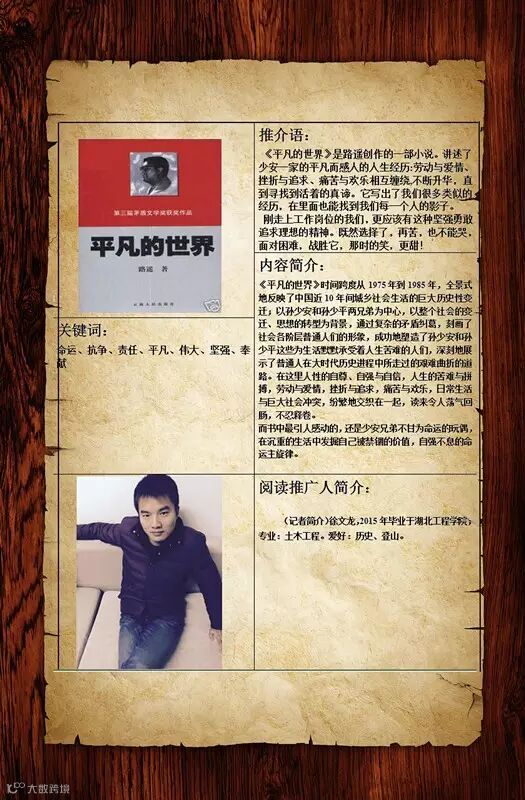 第三届茅盾文学奖获奖作品
平凡的世界
路遥 著
云南人民出版社
关键词：
命运、抗争、责任、平凡、伟大、坚强、奉
献
推介语：
《平凡的世界》是路遥创作的一部小说。讲述了
少安一家的平凡而感人的人生经历:劳动与爱情、
挫折与追求、痛苦与欢乐相互缠绕,不断升华，直
到寻找到活着的真谛。它写出了我们很多类似的
经历，在里面也能找到我们每一个人的影子。
刚走上工作岗位的我们，更应该有这种坚强勇敢
追求理想的精神。既然选择了，再苦，也不能哭，
面对困难，战胜它，那时的笑，更甜！
内容简介：
《平凡的世界》时间跨度从 1975 年到 1985 年，全景式
地反映了中国近 10 年间城乡社会生活的巨大历史性变
迁，以孙少安和孙少平两兄弟为中心，以整个社会的变
迁、思想的转型为背景，通过复杂的矛盾纠葛，刻画了
社会各阶层普通人们的形象，成功地塑造了孙少安和孙
少平这些为生活默默承受着人生苦难的人们，深刻地展
示了普通人在大时代历史进程中所走过的艰难曲折的道
路。在这里人性的自尊、自强与自信，人生的苦难与拼
搏，劳动与爱情，挫折与追求，痛苦与欢乐，日常生活
与巨大社会冲突，纷繁地交织在一起，读来令人荡气回
肠，不忍释卷。
而书中最引人感动的，还是少安兄弟不甘为命运的玩偶，
在沉重的生活中发掘自己被禁锢的价值，自强不息的命
运主旋律。
阅读推广人简介：
（记者简介）徐文龙,2015 年毕业于湖北工程学院；
专业：土木工程。爱好：历史、登山。
大数跨境